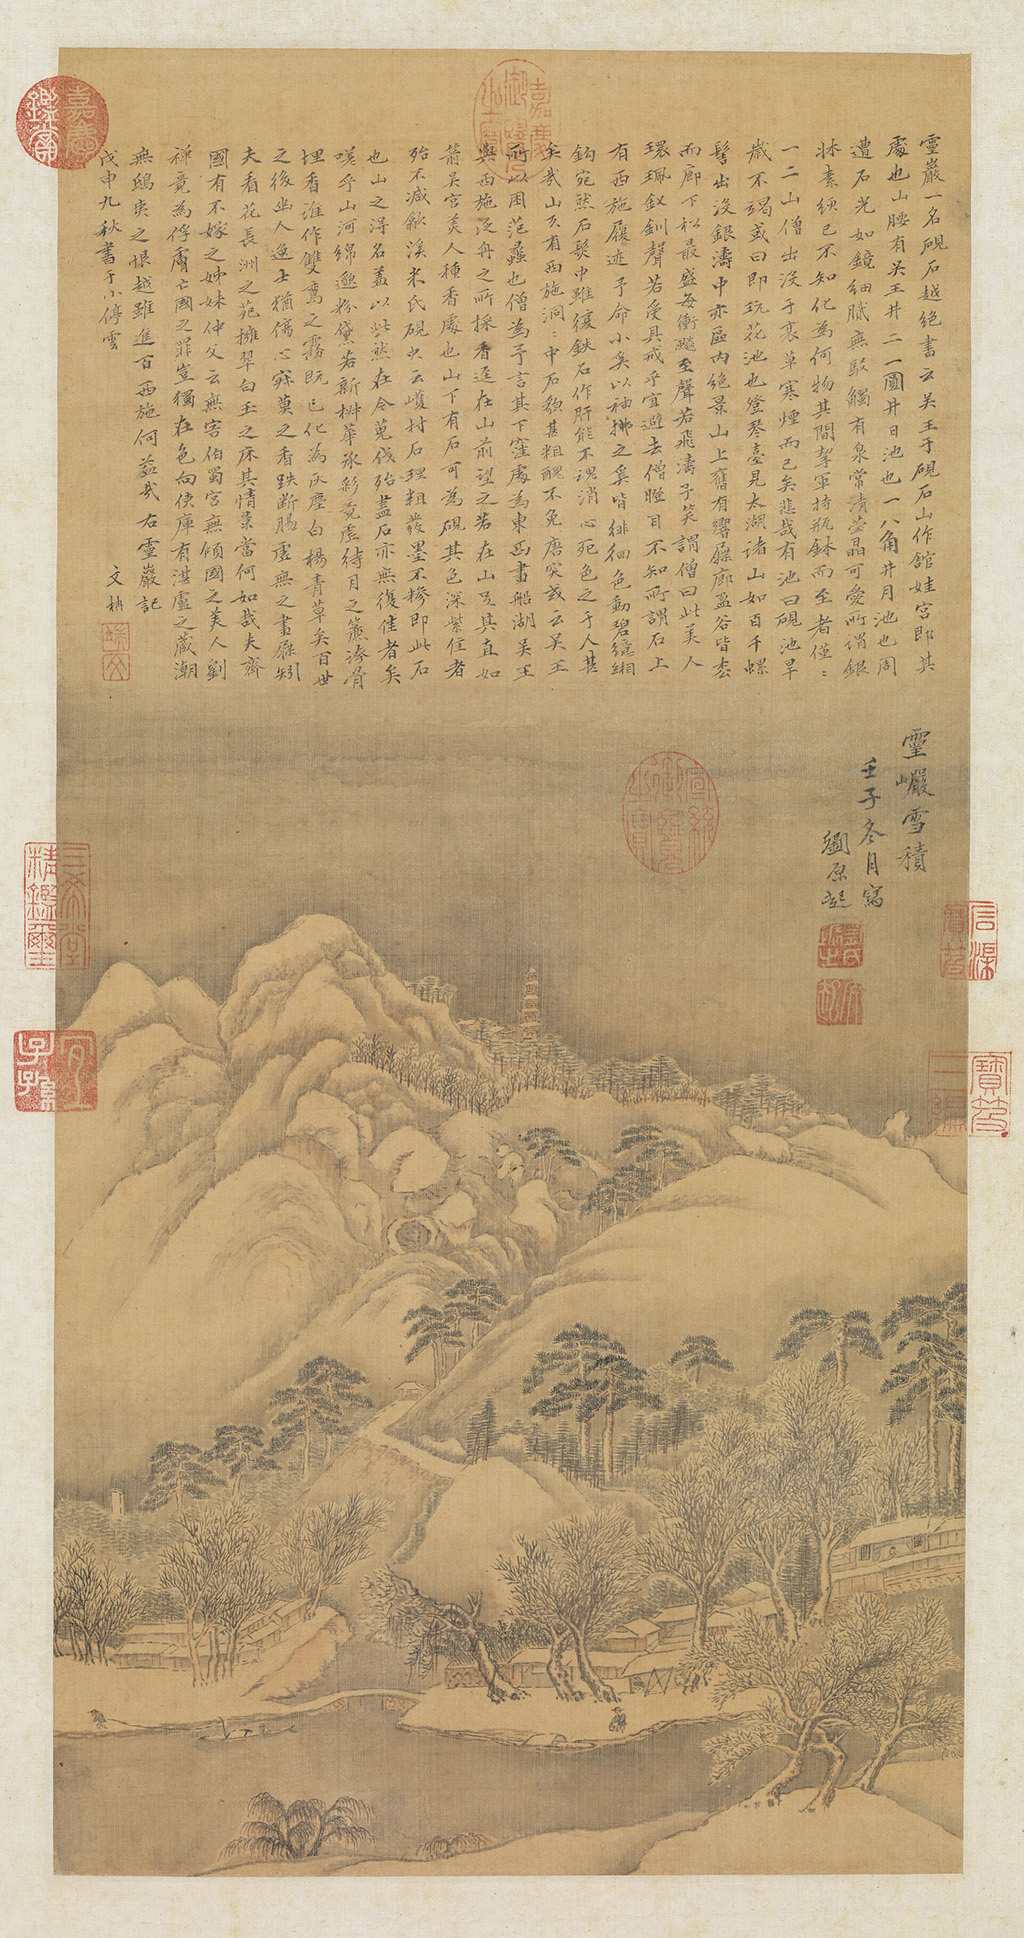 靈巖一名硯石越絕書云吳王于硯石山作館娃宮即其
處也山腰有吳王井二一圓井日池也一八角井月池也周
遭石光如鏡細膩無駁觸有泉常清瑩晶可愛所謂銀
牀素綆已不知化為何物其間挈軍持瓶鉢而至者僅
一二山僧出沒于衰草寒煙而已矣悲哉有池曰硯池旱
歲不竭或曰即玩花池也登琴臺見太湖諸山如百千螺
髻出沒銀濤中亦區內絕景山上舊有響屧廊盈谷皆松
而廊下松最盛每衝飈至聲若飛濤予笑謂僧曰此美人
環珮釵釧聲若受具戒乎宜避去僧瞪目不知所謂石上
有西施履迹予命小奚以袖拂之奚皆徘徊色動碧繶緗
鈎宛然石髮中雖復鉄石作肝能不魂消心死色之于人甚
矣哉山又有西施洞洞中石貌甚粗醜不免唐突或云吳王
所以囚范蠡也僧為予言其下窪處為東西畫船湖吳王
與西施泛舟之所採香逕在山前望之若在山足其直如
箭吳宮美人種香處也山下有石可為硯其色深紫佳者
殆不減歙溪米氏硯史云嶘村石理粗發墨不糝即此石
也山之得名蓋以此然在今蒐伐殆盡石亦無復佳者矣
嗟乎山河綿邈粉黛若新椒華沉彩竟虛待月之簾誇骨
埋香誰作雙鸞之霧既已化為灰塵白楊青草矣百世
之後幽人逸士猶傷心寂寞之香趺斷腸虛無之畫屧矧
夫看花長洲之苑擁翠白玉之床其情景當何如哉夫齊
國有不嫁之姊妹仲父云無害伯蜀宮無傾國之美人劉
禪竟為俘虜亡國之罪豈獨在色向使庫有湛盧之藏潮
無鴟夷之恨越雖進百西施何益哉右靈巖記
戊申九秋書于小停雲
文枏
靈巗雪積
壬子冬月寫
劉原起
嘉慶鑑賞
嘉慶御覽之寶
宣統御覽之寶
三希堂精鑑璽
宜子孫
石渠寶笈
寶笈三編